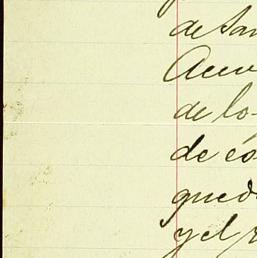 de San
Acu
de lo-
de éo
qued
y el r